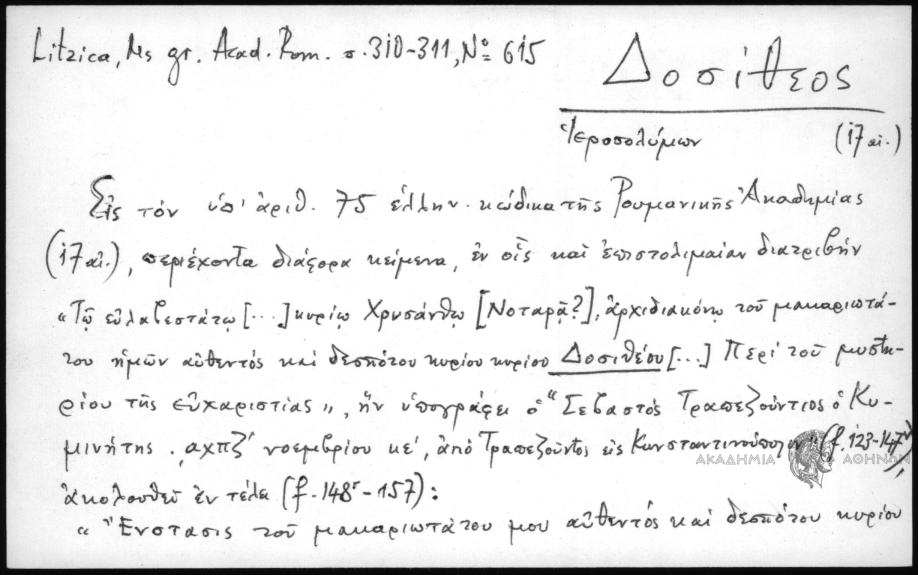 Litzica, Ms gr. Acad. Rom. σ. 310-311, Nº 615
Δοσίθεος
Ἱεροσολύμων (17 αἰ.)
Εἰς τὸν ὑπ' ἀριθ. 75 ἑλλην. κώδικα τῆς Ρουμανικῆς Ἀκαδημίας
(17 αἰ.), περιέχοντα διάφορα κείμενα, ἐν οἷς καὶ ἐπιστολιμαίαν διατριβὴν
«Τῷ εὐλαβεστάτῳ [...] κυρίῳ Χρυσάνθῳ [Νοταρᾷ?], ἀρχιδιακόνῳ τοῦ μακαριωτά-
του ἡμῶν αὐθεντὸς καὶ δεσπότου κυρίου κυρίου Δοσιθέου [...] Περὶ τοῦ μυστη-
ρίου τῆς εὐχαριστίας», ἣν ὑπογράφει ὁ "Σεβαστὸς Τραπεζούντιος ὁ Κυ-
μινήτης. ͵αχπζʹ νοεμβρίου κεʹ, ἀπὸ Τραπεζοῦντος εἰς Κωνσταντινούπολιν" (f. 123-147ᵛ),
ΑΚΑΔΗΜΙΑ ΑΘΗΝΩΝ
ἀκολουθεῖ ἐν τέλει (f. 148ʳ-157):
«Ἔνστασις τοῦ μακαριωτάτου μου αὐθεντὸς καὶ δεσπότου κυρίου